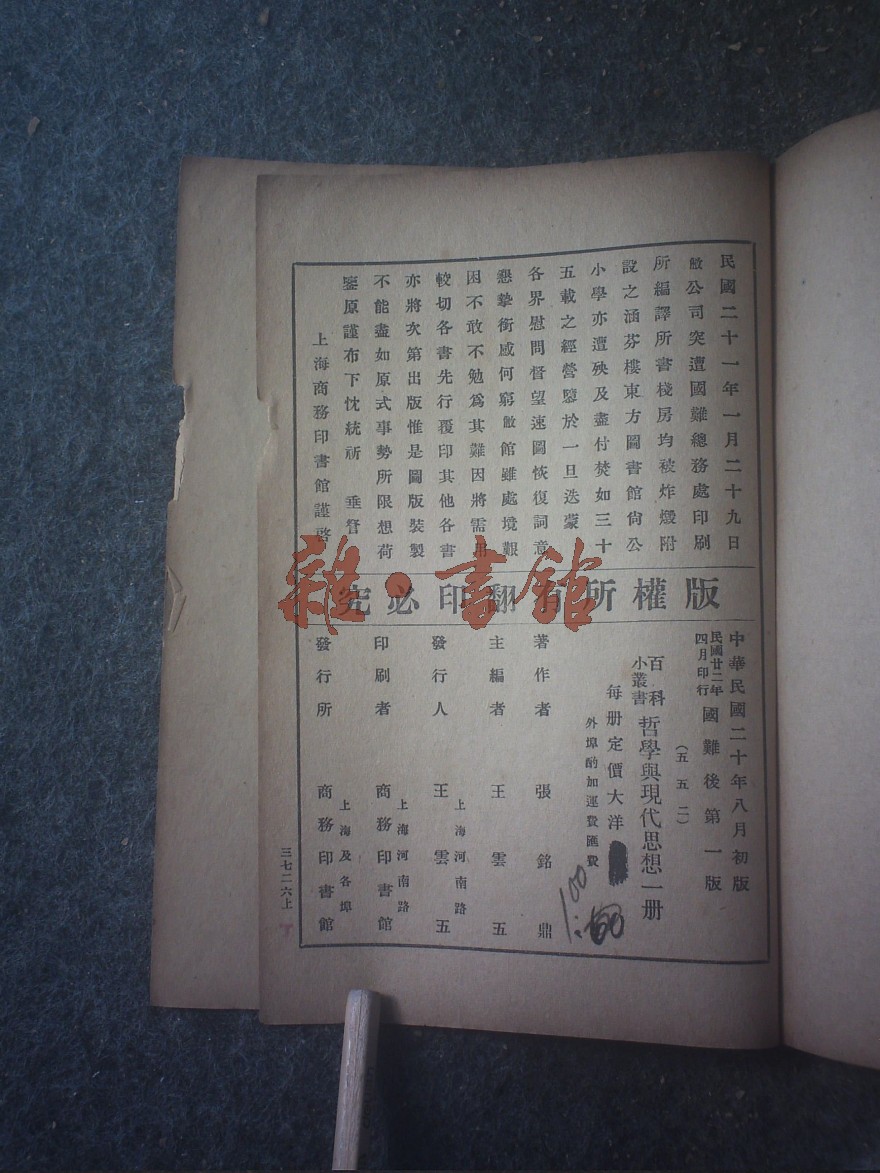 民國二十一年一月二十九日
敝公司突遭國難總務處印刷
所編譯所書棧房均被炸燬附
設之涵芬樓東方圖書館尙公
小學亦遭殃及盡付焚如三十
五載之經營隳於一旦迭蒙
各界慰問督望速圖恢復詞意
懇摯銜感何窮敝館雖處境艱
困不敢不勉爲其難因將需用
較切各書先行覆印其他各書
亦將次第出版惟是圖版裝製
不能盡如原式事勢所限想荷
鑒原謹布下忱統祈 垂詧
上海商務印書館謹啓
版權所有翻印必究
雜·書館
中華民國二十年八月初版
民國廿二年四月印行 國難後第一版
（五五二）
百科小叢書 哲學與現代思想一册
每册定價大洋
1.00
外埠酌加運費匯費
著作者 張銘鼎
主編者 王雲五
上海河南路
發行人 王雲五
上海河南路
印刷者 商務印書館
上海及各埠
發行所 商務印書館
三七二六上
丁